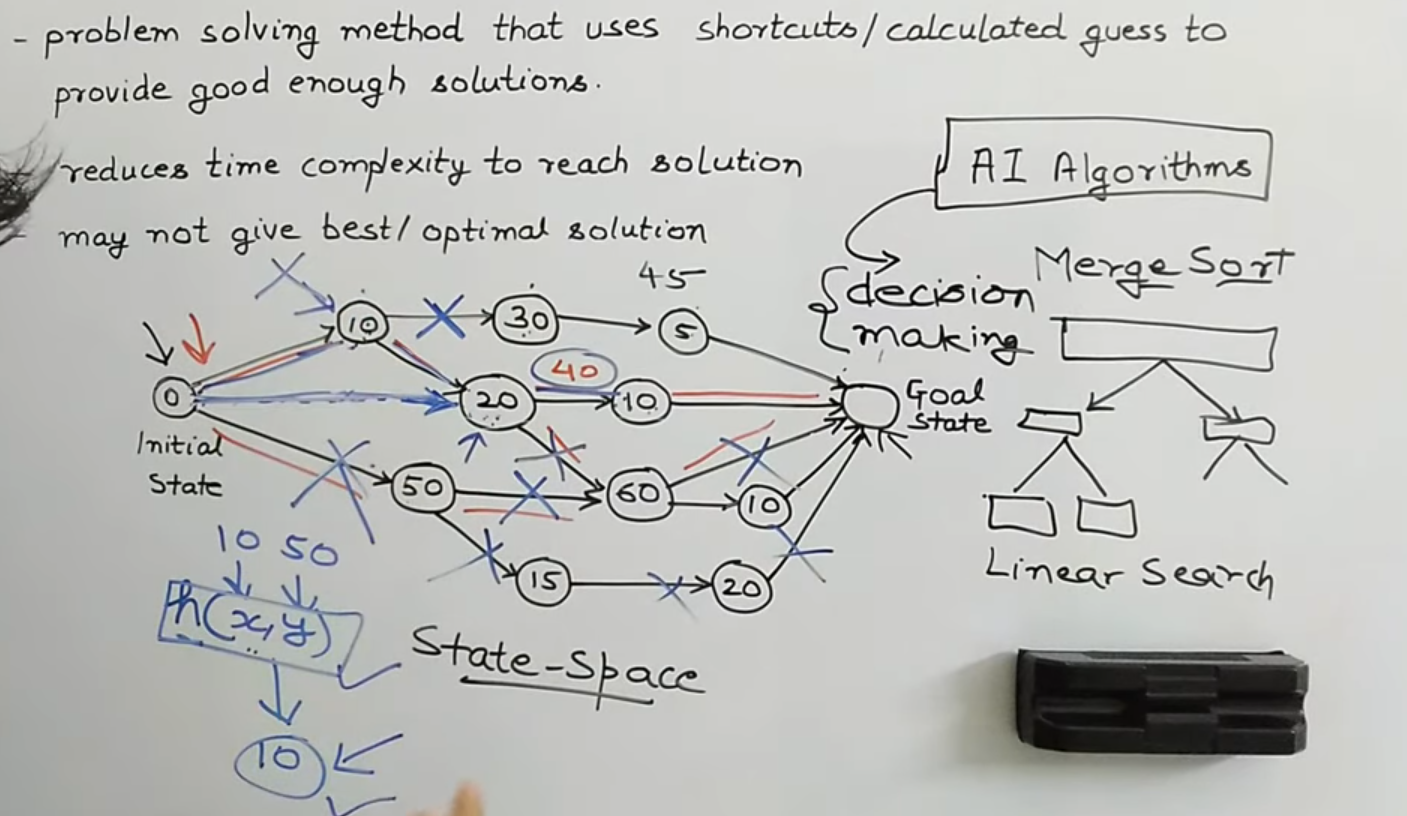 - problem solving method that uses shortcuts/calculated guess to
provide good enough solutions.
reduces time complexity to reach solution
may not give best/optimal solution
AI Algorithms
decision
making
Merge Sort
45
10
30
5
40
0
20
10
Goal
state
Initial
State
50
60
10
15
20
10 50
h(x,y)
10
State-Space
Linear Search